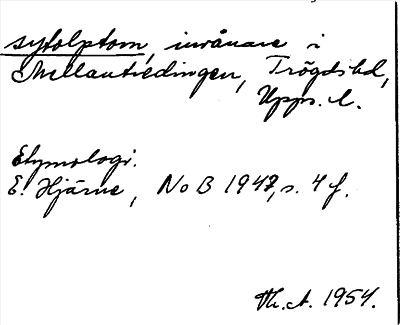 sytolptom, invånare i
Mellantiedingen, Trögds hd,
Upps. l.
Etymologi.
E. Hjärne, NoB 1947, s. 4 f.
Th. A. 1954.